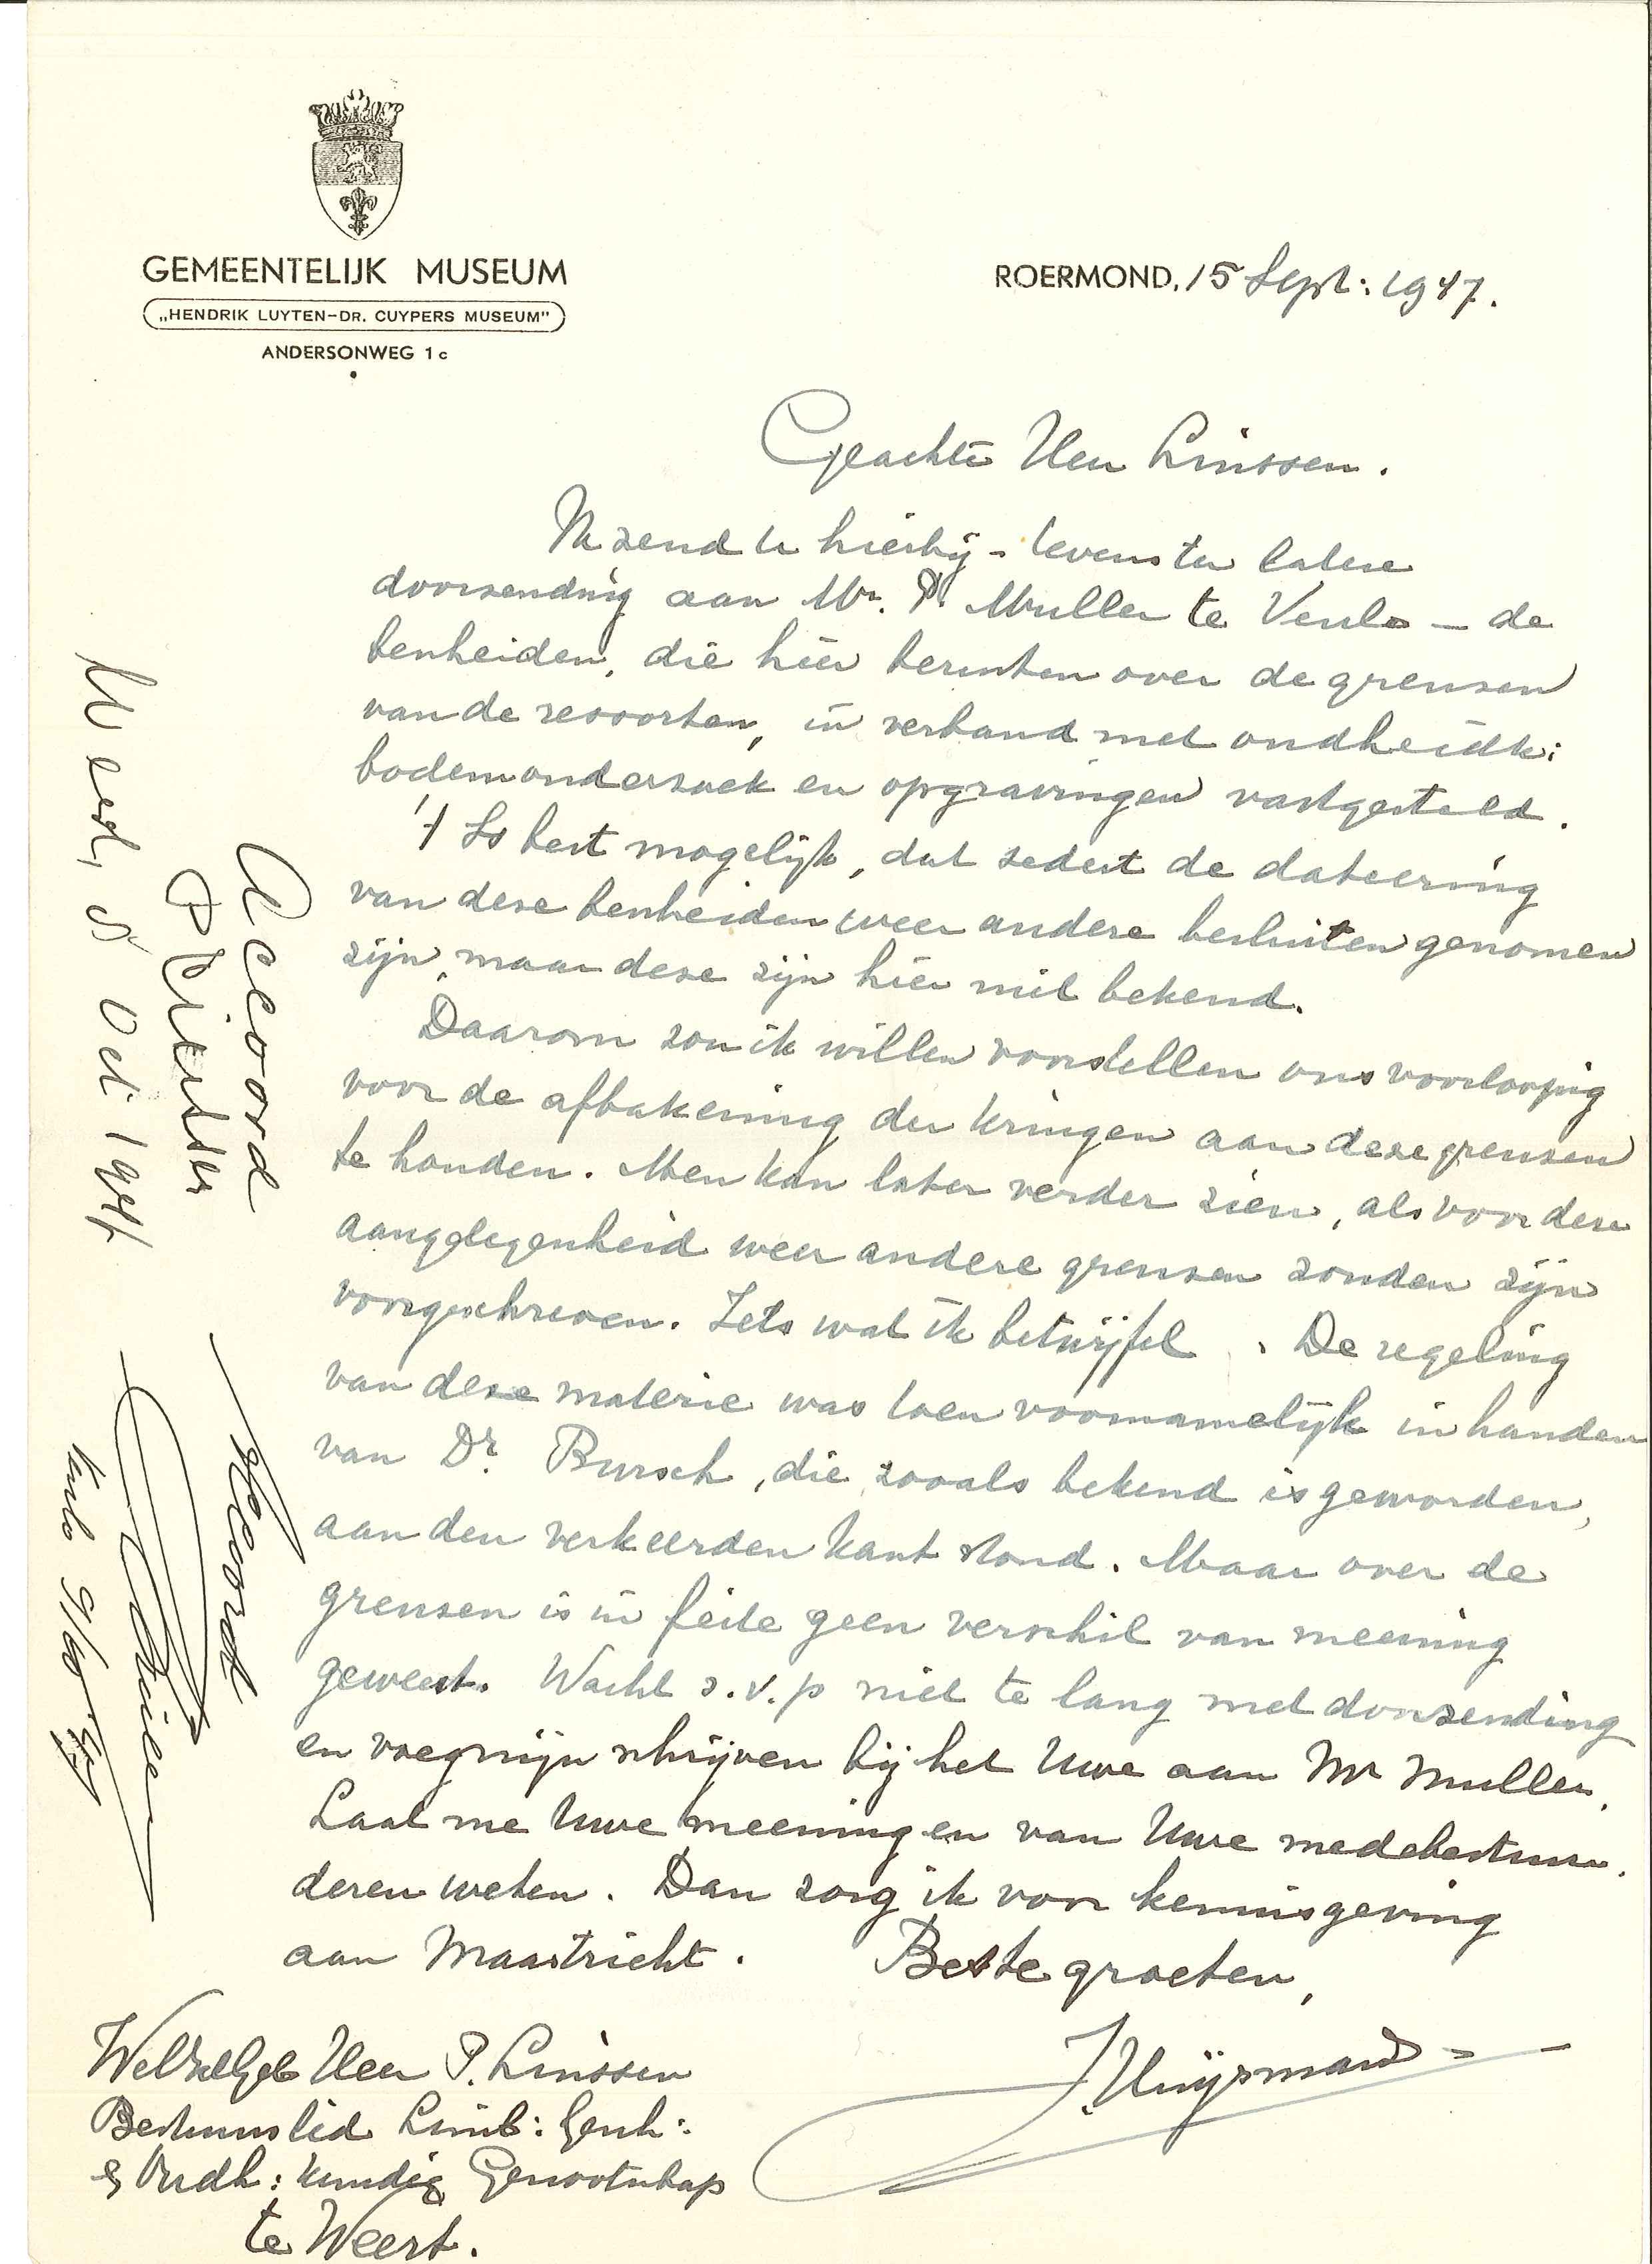 GEMEENTELIJK MUSEUM
„HENDRIK LUYTEN-DR. CUYPERS MUSEUM"
ANDERSONWEG 1c
ROERMOND, 15 Sept: 1947.
Geachte Heer Linssen.
Ik zend U hierbij - tevens ter latere
doorzending aan Mr. P. Muller te Venlo - de
bescheiden, die hier berusten over de grenzen
van de ressorten, in verband met oudheidk:
bodemonderzoek en opgravingen vastgesteld.
't Is best mogelijk, dat sedert de dateering
van deze bescheiden weer andere besluiten genomen
zijn, maar deze zijn hier niet bekend.
Daarom zou ik willen voorstellen ons voorloopig
voor de afbakening der kringen aan deze grenzen
te houden. Men kan later verder zien, als voor deze
aangelegenheid weer andere grenzen zouden zijn
voorgeschreven. Iets wat ik betwijfel. De regeling
van deze materie was toen voornamelijk in handen
van Dr. Bursch, die zooals bekend is geworden,
aan den verkeerden kant stond. Maar over de
grenzen is in feite geen verschil van meening
geweest. Wacht s.v.p niet te lang met doorzending
en voeg mijn schrijven bij het Uwe aan Mr Muller.
Laat me Uwe meening en van Uwe medebestuur-
deren weten. Dan zorg ik voor kennisgeving
aan Maastricht. Beste groeten,
J. Huijsmans
WelEdGeb Heer P. Linssen
Bestuurslid Limb: Gesch:
& Oudh: kundig Genootschap
te Weert.
Accoord
Weert, 5 Oct 1947
Accoord
Venlo 9/10 47